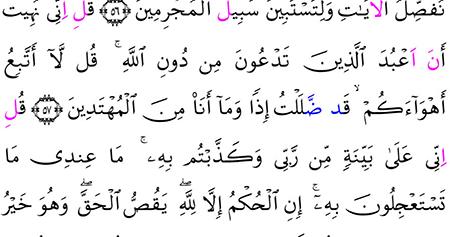 نُفَصِّلُ اُ۬لَايَٰتِ وَلِتَسْتَبِينَ سَبِيلَ اَ۬لْمُجْرِمِينَ ٥٦ قُلِ اِنِّي نُهِيتُ
أَنَ اَعْبُدَ اَ۬لَّذِينَ تَدْعُونَ مِن دُونِ اِ۬للَّهِۖ قُل لَّآ أَتَّبِعُ
أَهْوَآءَكُمْ قَد ضَّلَلْتُ إِذًا وَمَآ أَنَا۠ مِنَ اَ۬لْمُهْتَدِينَ ٥٧ قُلِ
اِنِّي عَلَىٰ بَيِّنَةٍ مِّن رَّبِّي وَكَذَّبْتُم بِهِۦۚ مَا عِندِي مَا
تَسْتَعْجِلُونَ بِهِۦٓۚ إِنِ اِ۬لْحُكْمُ إِلَّا لِلَّهِۖ يَقُصُّ اُ۬لْحَقَّۖ وَهُوَ خَيْرُ